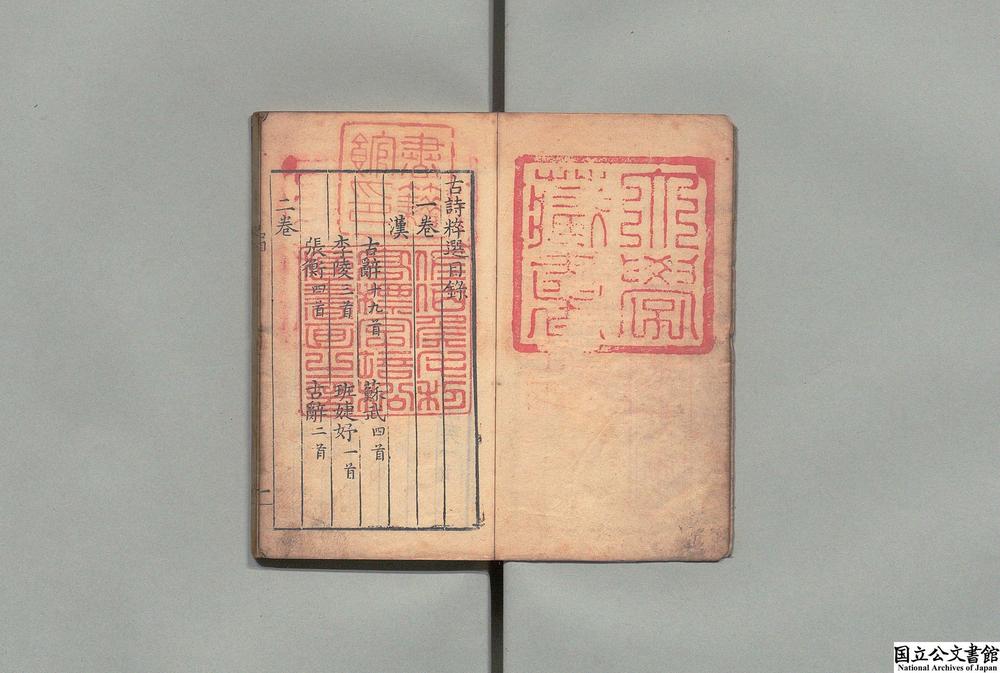 大學
藏書
書籍
館印
古詩粹選目錄
一卷
漢
古辭十九首 蘇武四首
李陵三首 班婕妤一首
張衡四首 古辭二首
二卷
国立公文書館
National Archives of Japan